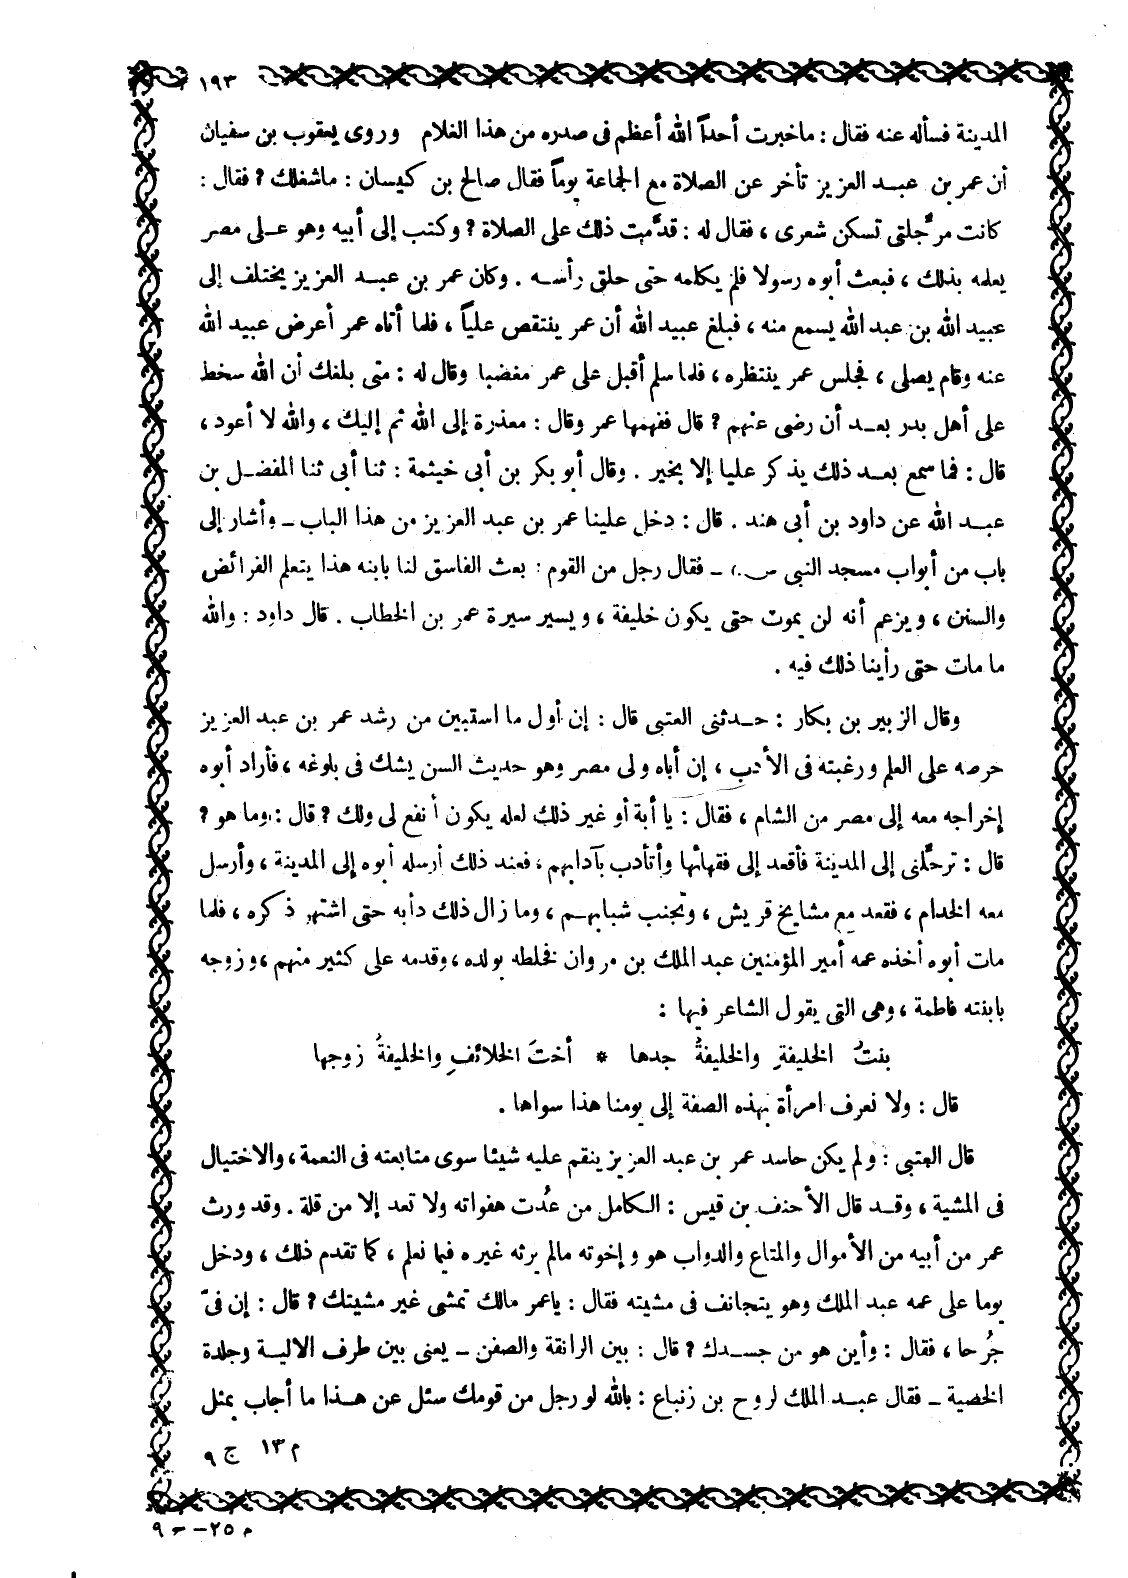 ١٩٣
المدينة فسأله عنه فقال : ماخبرت أحداً الله أعظم فى صدره من هذا الغلام وروى يعقوب بن سفيان
أن عمر بن عبد العزيز تأخر عن الصلاة مع الجماعة يوماً فقال صالح بن كيسان : ماشغلك ؟ فقال :
كانت مرجّلتى تسكن شعرى ، فقال له : قدَّمت ذلك على الصلاة ؟ وكتب إلى أبيه وهو على مصر
يعلمه بذلك ، فبعث أبوه رسولا فلم يكلمه حتى حلق رأسه . وكان عمر بن عبد العزيز يختلف إلى
عبيد الله بن عبد الله يسمع منه ، فبلغ عبيد الله أن عمر ينتقص علياً ، فلما أتاه عمر أعرض عبيد الله
عنه وقام يصلى ، فجلس عمر ينتظره ، فلما سلم أقبل على عمر مغضبا وقال له : متى بلغك أن الله سخط
على أهل بدر بعد أن رضى عنهم ؟ قال ففهمها عمر وقال : معذرة إلى الله ثم إليك ، والله لا أعود ،
قال : فما سمع بعد ذلك يذكر عليا إلا بخير . وقال أبو بكر بن أبى خيثمة : ثنا أبى ثنا المفضل بن
عبد الله عن داود بن أبى هند . قال : دخل علينا عمر بن عبد العزيز من هذا الباب ــ وأشار إلى
باب من أبواب مسجد النبى ــ فقال رجل من القوم : بعث الفاسق لنا بابنه هذا يتعلم الفرائض
والسنن ، ويزعم أنه لن يموت حتى يكون خليفة ، ويسير سيرة عمر بن الخطاب . قال داود : والله
ما مات حتى رأينا ذلك فيه .
وقال الزبير بن بكار : حدثنى العتبى قال : إن أول ما استبين من رشد عمر بن عبد العزيز
حرصه على العلم ورغبته فى الأدب ، إن أباه ولى مصر وهو حديث السن يشك فى بلوغه ، فأراد أبوه
إخراجه معه إلى مصر من الشام ، فقال : يا أبة أو غير ذلك لعله يكون أنفع لى ولك ؟ قال : وما هو ؟
قال : ترحّلنى إلى المدينة فأقعد إلى فقهائها وأتأدب بآدابهم ، فعند ذلك أرسله أبوه إلى المدينة ، وأرسل
معه الخدام ، فقعد مع مشايخ قريش ، وتجنب شبابهم ، وما زال ذلك دأبه حتى اشتهر ذكره ، فلما
مات أبوه أخذه عمه أمير المؤمنين عبد الملك بن مروان فخلطه بولده ، وقدمه على كثير منهم ، وزوجه
بابنته فاطمة ، وهى التى يقول الشاعر فيها :
بنتُ الخليفةِ والخليفةُ جدها * أختُ الخلائفِ والخليفةُ زوجها
قال : ولا نعرف امرأة بهذه الصفة إلى يومنا هذا سواها .
قال العتبى : ولم يكن حاسد عمر بن عبد العزيز ينقم عليه شيئا سوى متابعته فى النعمة ، والاختيال
فى المشية ، وقد قال الأحنف بن قيس : الكامل من عُدت هفواته ولا تعد إلا من قلة . وقد ورث
عمر من أبيه من الأموال والمتاع والدواب هو وإخوته مالم يرثه غيره فيما نعلم ، كما تقدم ذلك ، ودخل
يوما على عمه عبد الملك وهو يتجانف فى مشيته فقال : ياعمر مالك تمشى غير مشيتك ؟ قال : إن فىّ
جُرحا ، فقال : وأين هو من جسدك ؟ قال : بين الرانقة والصفن ــ يعنى بين طرف الالية وجلدة
الخصية ــ فقال عبد الملك لروح بن زنباع : بالله لو رجل من قومك سئل عن هذا ما أجاب بمثل
م ١٣ ج ٩
م ٢٥ - ح ٩